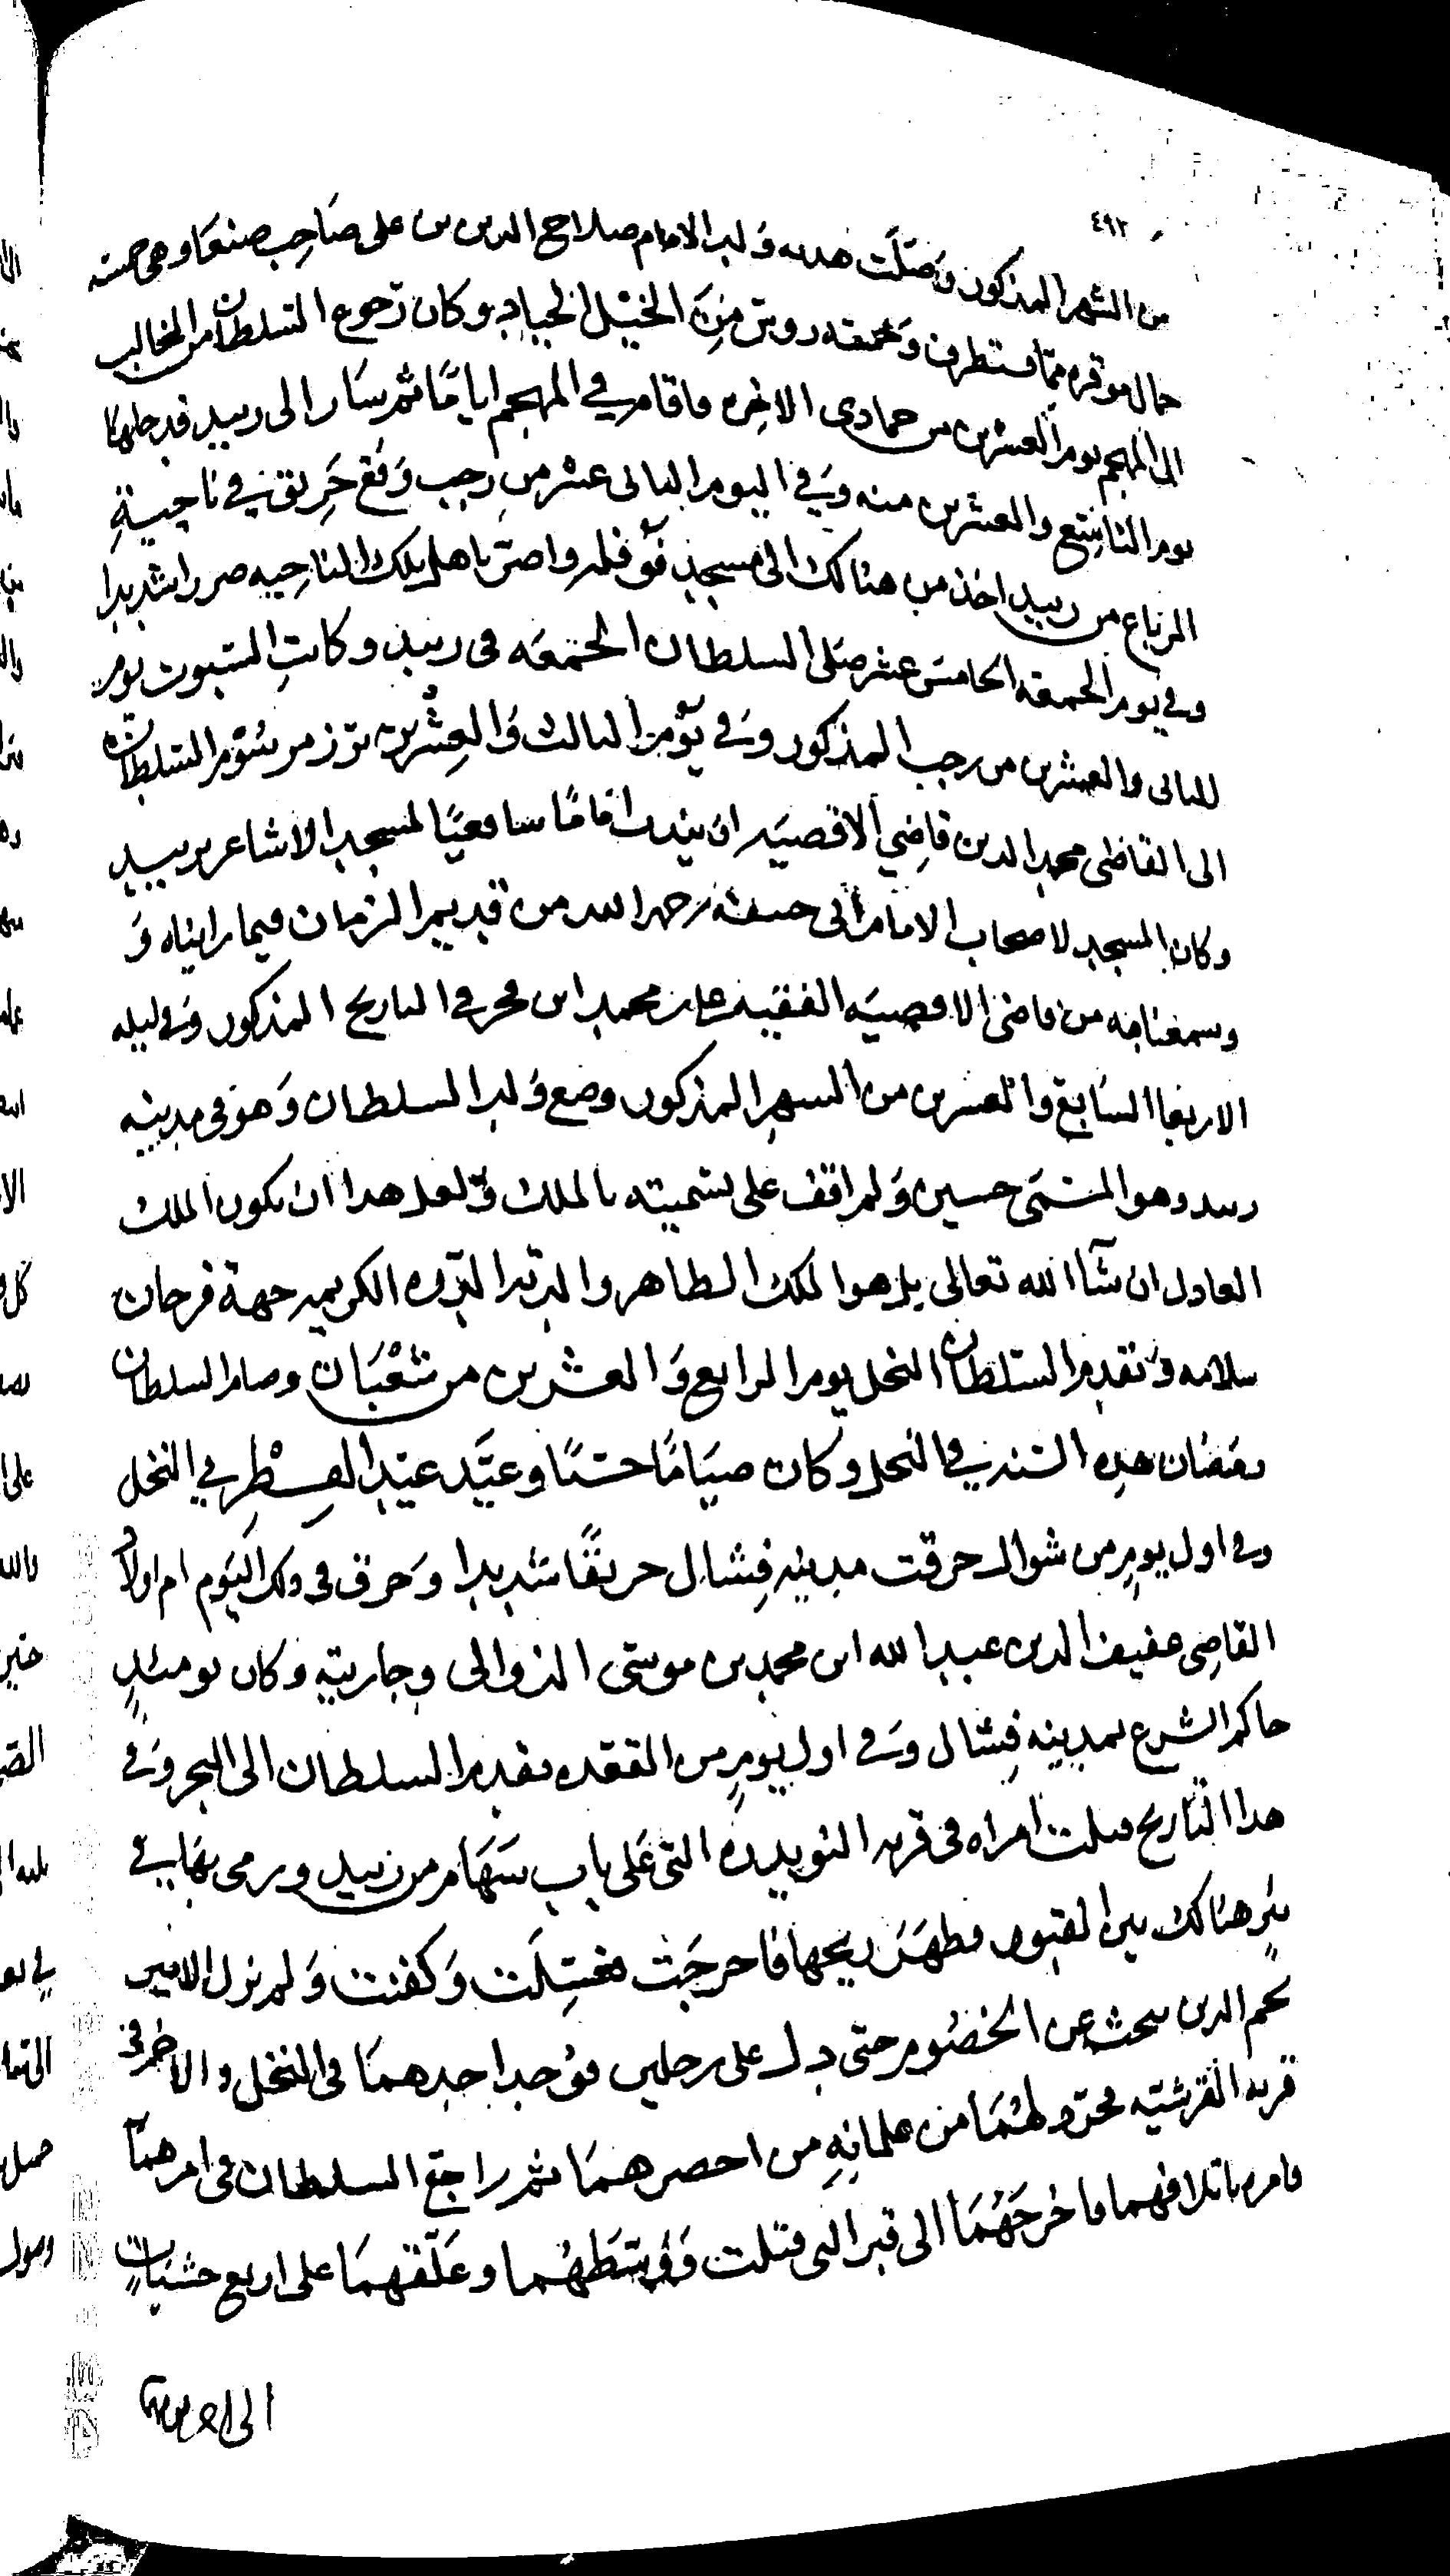 ٤٩٢
من الشهر المذكور وصلت هديه ولد الامام صلاح الدين بن على صاحب صنعا وهى خمسه
جمال موقره مما يستطرف وخمسه روس من الخيل الجياد وكان رجوع السلطان من المخالب
الى المهجم يوم العشرين من جمادى الاخره فاقام في المهجم اياما ثم سار الى زبيد فدخلها
يوم التاسع والعشرين منه وفي اليوم الثانى عشر من رجب وقع حريق في ناحية
المرباع من زبيد اخذ من هنالك الى مسجد فوفله واضر باهل تلك الناحيه ضررا شديدا
وفي يوم الجمعه الخامس عشر صلى السلطان الجمعه فى زبيد وكانت السبوت يوم
الثانى والعشرين من رجب المذكور وفي يوم الثالث والعشرين برز مرسوم السلطان
الى القاضى مجد الدين قاضي الاقضيه ان يندب اماما شافعيا لمسجد الاشاعر بزبيد
وكان المسجد لاصحاب الامام ابى حنيفه رحمه الله من قديم الزمان فيما رايناه و
وسمعنا به من قاضى الاقضيه الفقيه على بن محمد ابن فخر في التاريخ المذكور وفي ليله
الاربعا السابع والعشرين من الشهر المذكور وضع ولد السلطان وهو فى مدينه
زبيد وهو المسمى حسين ولم اقف على تسميته بالملك ولعل هذا ان يكون الملك
العادل ان شآ الله تعالى بل هو الملك الظاهر والدته الدره الكريمه جهة فرحان
سلامه وتقدم السلطان النخل يوم الرابع والعشرين من شعبان وصام السلطان
رمضان هذه السنه في النخل وكان صياما حسنا وعيد عيد الفطر في النخل
وفي اول يوم من شوال حرقت مدينه فشال حريقا شديدا وحرق فى ذلك اليوم ام اولاد
القاضى عفيف الدين عبد الله ابن محمد بن موسى الذوالى وجاريته وكان يومئذ
حاكم الشرع بمدينه فشال وفي اول يوم من القعده تقدم السلطان الى البحر وفي
هذا التاريخ قتلت امراه فى قريه النويدره التى على باب سهام من زبيد ورمى بها في
بئر هنالك بين القبور فظهر ريحها فاخرجت فغسلت وكفنت ولم يزل الامير
نجم الدين يبحث عن الخصوم حتى دل على رجلين فوجد احدهما فى النخل والاخر فى
قريه القرشيه فجرد لهما من غلمانه من احضرهما ثم راجع السلطان فى امرهما
فامره باتلافهما فاخرجهما الى قبر التى قتلت ووسطهما وعلقهما على اربع خشبات